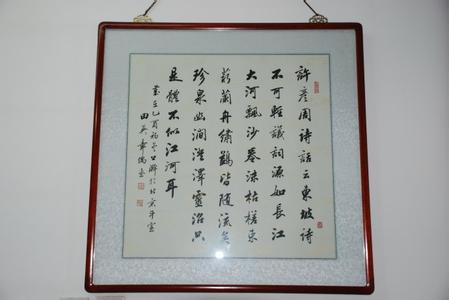 許彥周詩話云東坡詩
不可輕議詞源如長江
大河飄沙卷沫枯槎束
薪蘭舟繡鷁皆隨流矣
珍泉幽澗澄澤靈沼只
是體不似江河耳
歲在乙酉
田英章